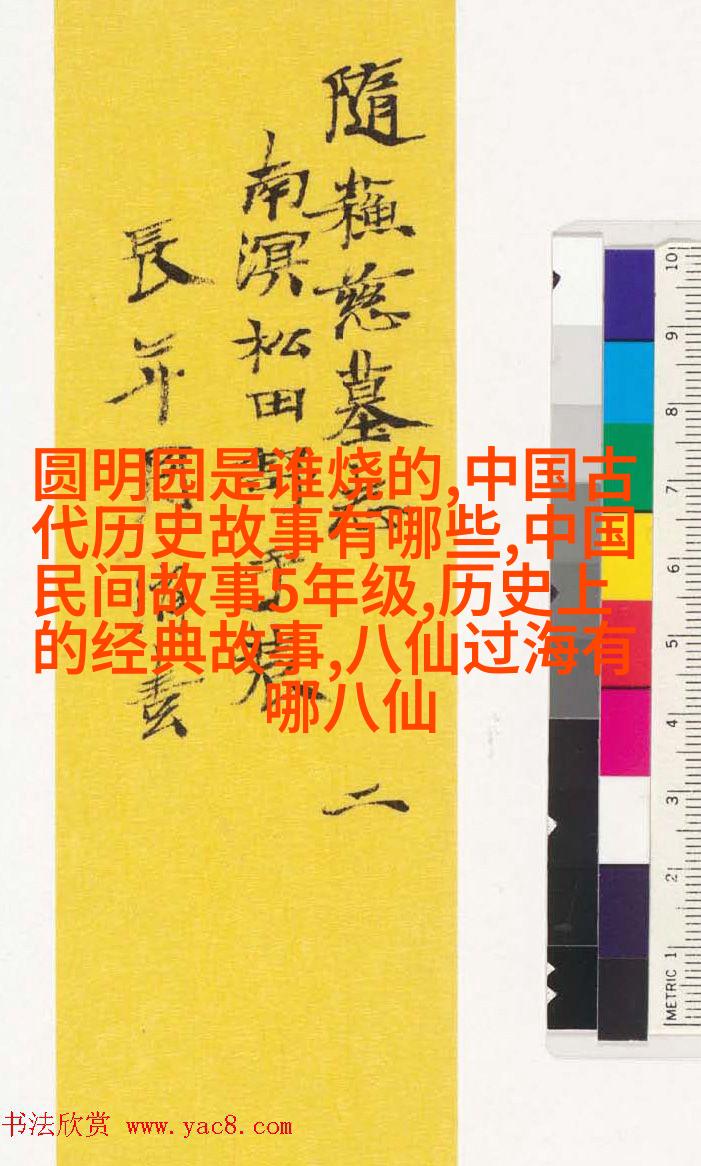 隨蘓慈墓志 二
南溟松田
長
圆明园是谁烧的,中国古
代历史故事有哪些,中国
民间故事5年级,历史上
的经典故事,八仙过海有
哪八仙
10
9
8
7
6
5
4
3
2
METRIC 1
书法欣赏 www.yac8.com